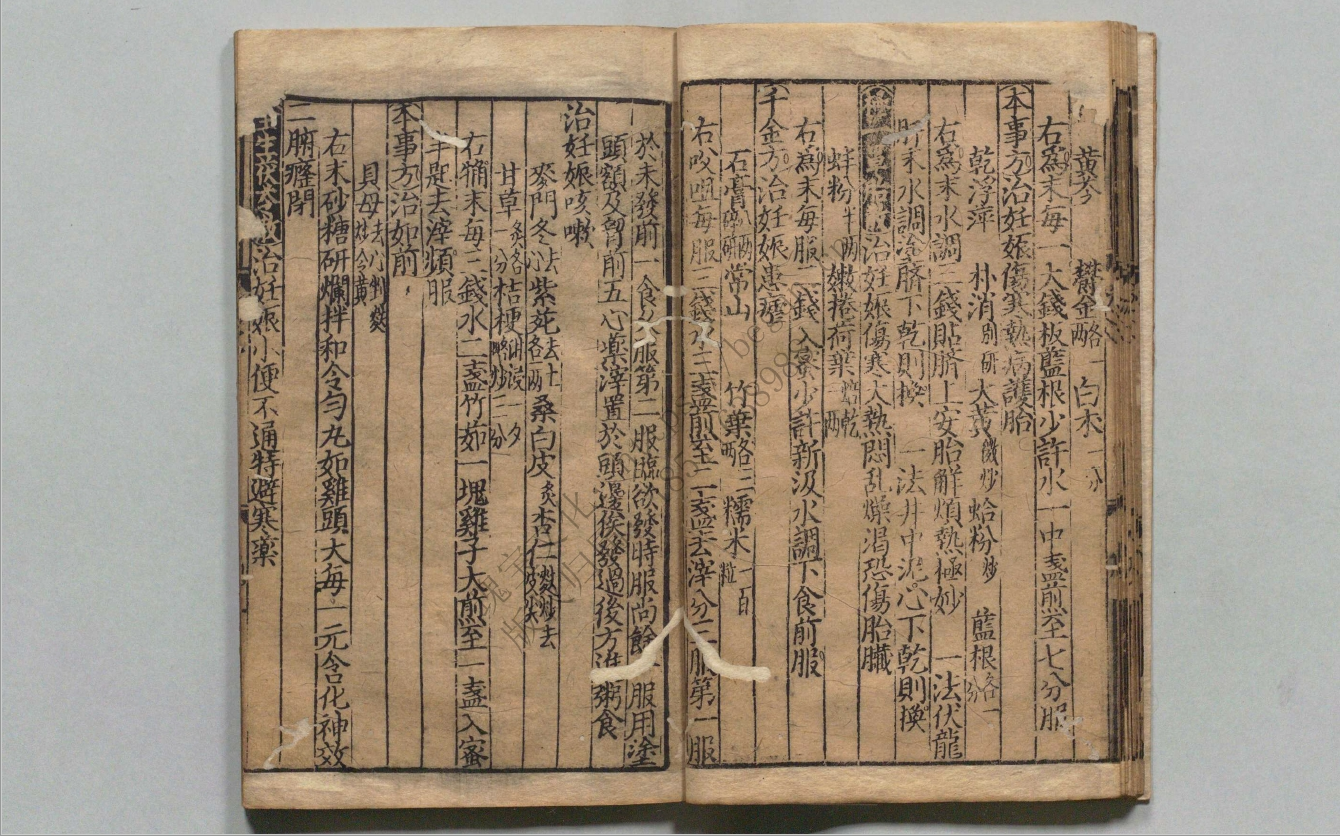 黄芩 欝金各一兩 白朮一分
右爲末每一大錢板藍根少許水一中盞煎至七分服
本事方治妊娠傷寒熱病護胎
乾浮萍 朴消别研 大黃微炒 蛤粉炒 藍根各一分
右爲末水調一錢貼臍上安胎解煩熱極妙 一法伏龍
肝末水調塗臍下乾則換 一法井中泥心下乾則換
治妊娠傷寒大熱悶乱燥渴恐傷胎臟
蚌粉半兩 嫩捲荷葉焙乾一兩
右爲末每服二錢入蜜少許新汲水調下食前服
千金方治妊娠患瘧
石膏 常山 竹葉各三兩 糯米一百粒
右㕮咀每服三錢水三盞煎至二盞去滓分三服第一服
於未發前一食久服第二服臨欲發時服尚餘一服用塗
頭額及胷前五心藥滓置於頭邊俟發過後方進粥食
治妊娠咳嗽
麥門冬去心 紫菀去土各一兩 桑白皮炙 杏仁麩炒去皮尖
甘草炙各一分 桔梗
右㕮末每三錢水二盞竹茹一塊雞子大煎至一盞入蜜
半匙去滓煩服
本事方治如前
貝母去心麩炒令黃
右末砂糖研爛拌和令勻丸如雞頭大每一元含化神效
二腑癰閉
治妊娠小便不通特避寒藥